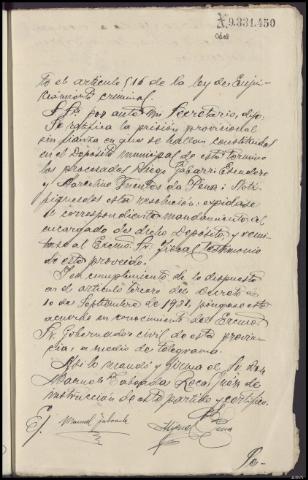 9.331.450
to el artículo 516 de la ley de Enjui-
ciamiento criminal.
S. Sª por ante mí Secretario, dijo:
Se ratifica la prisión provisional
sin fianza en que se hallan constituidos
en el Depósito municipal de este término
los procesados Diego Gabarri Escudero
y Marcelino Dueñas da Pena: Noti-
fíqueseles esta resolución: expídase
el correspondiente mandamiento al
encargado de dicho Depósito y remí-
tase al Excmo. Sr. Fiscal testimonio
de este proveido.
Y en cumplimiento de lo dispuesto
en el artículo tercero del Decreto de
10 de Septiembre de 1931, póngase este
acuerdo en conocimiento del Excmo.
Sr. Gobernador civil de esta provin-
cia a medio de telegrama.
Así lo mandó y firma el Sr. Don
Manuel Taboada Roca Juez de
instrucción de este partido y certifico.
E/. Manuel Taboada
Miguel Pena